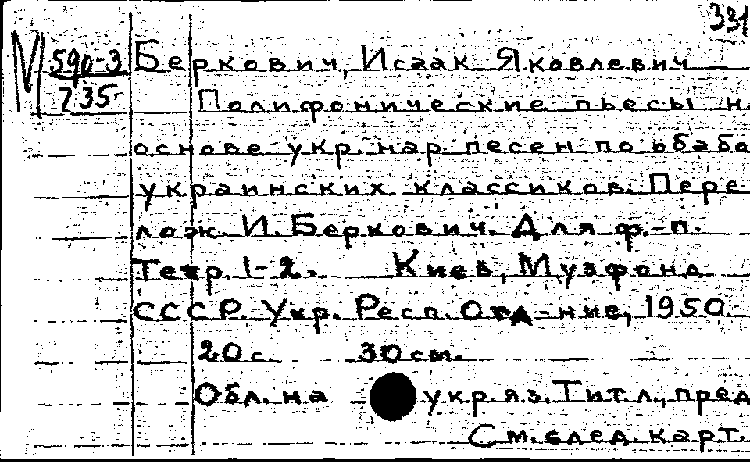 331
М 590-3 Беркович, Исаак Яковлевич
735 Полифонические пьесы н
основе укр. нар. песен по обраб
украинских классиков. Пере-
лож. И. Беркович. Для ф.-п.
Тетр. 1-2. Киев, Музфонд
СССР. Укр. Респ. Отд-ние, 1950
20 с. 30 см.
Обл. на укр. яз. Тит. л., пред
См. след. карт.